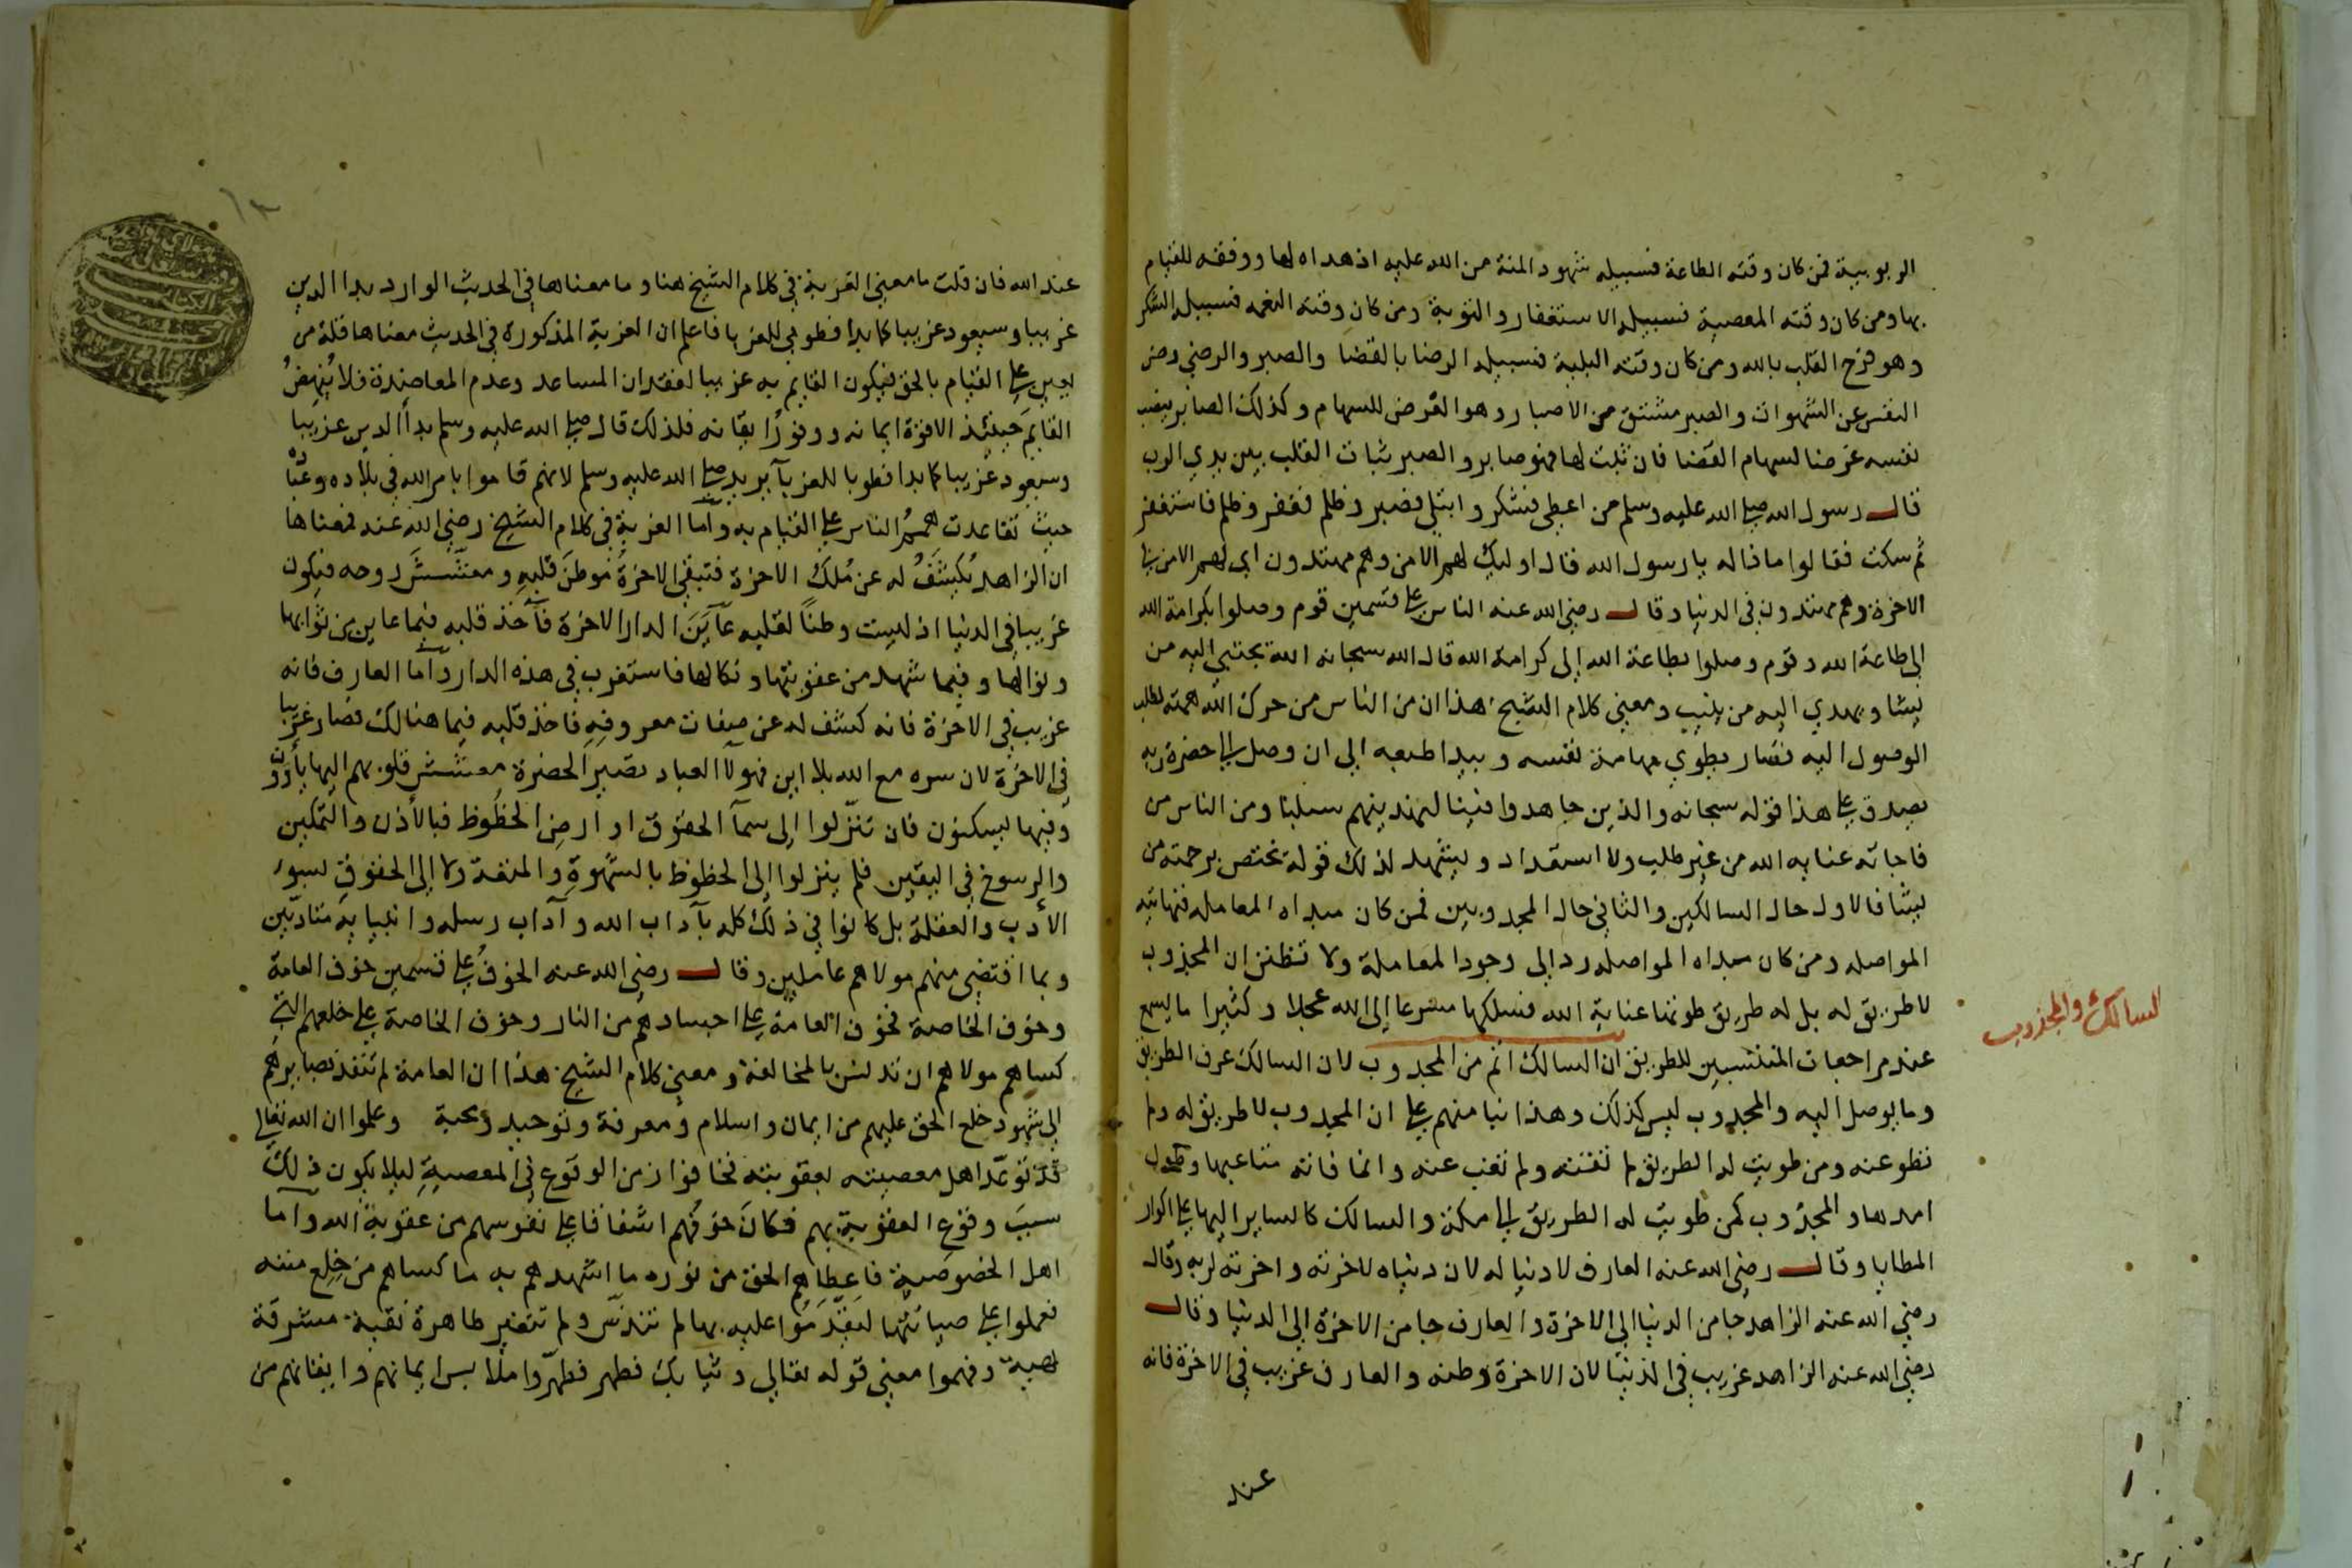 الربوبية فمن كان وقته الطاعة فسبيله شهود المنة من الله عليه اذ هداه لها ووفقه للقيام
بها ومن كان وقته المعصية فسبيله الاستغفار والتوبة ومن كان وقته النعمه فسبيله الشكر
وهو فرح القلب بالله ومن كان وقته البلية فسبيله الرضا بالقضا والصبر والرضي رضى
النفس عن الشهوات والصبر مشتق من الاصبار وهو الغرض للسهام وكذلك الصابر ينصب
نفسه غرضا لسهام القضا فان ثبت لها فهو صابر والصبر ثبات القلب بين يدي الرب
قال رسول الله صلى الله عليه وسلم من اعطى فشكر وابتلي فصبر وظلم فغفر وظلم فاستغفر
ثم سكت فقالوا ماذا له يا رسول الله قال اوليك لهم الامن وهم مهتدون اي لهم الامن في
الاخرة وهم مهتدون في الدنيا وقال رضي الله عنه الناس على قسمين قوم وصلوا بكرامة الله
الى طاعة الله وقوم وصلوا بطاعة الله الى كرامة الله قال الله سبحانه الله يجتبي اليه من
يشا ويهدي اليه من ينيب ومعنى كلام الشيخ هذا ان من الناس من حرك الله همته لطلب
الوصول اليه فصار يطوي مهامه نفسه وبيدا طبعه الى ان وصل الى حضرة ربه
يصدق على هذا قوله سبحانه والذين جاهدوا فينا لنهدينهم سبلنا ومن الناس من
فاجاته عناية الله من غير طلب ولا استعداد ويشهد لذلك قوله يختص برحمته من
يشا فالاول حال السالكين والثاني حال المجذوبين فمن كان مبداه المعامله فنهايته
المواصله ومن كان مبداه المواصله رد الى وجود المعاملة ولا تظنن ان المجذوب
لا طريق له بل له طريق طوتها عناية الله فسلكها مسرعا الى الله عجلا وكثيرا ما يسمع
عند مراجعات المنتسبين للطريق ان السالك اتم من المجذوب لان السالك عرف الطريق
وما يوصل اليه والمجذوب ليس كذلك وهذا بنا منهم على ان المجذوب لا طريق له ولم
تطو عنه ومن طويت له الطريق لم تفته ولم تغب عنه وانما فاته متاعبها وطول
امدها والمجذوب كمن طويت له الطريق الى مكة والسالك كالساير اليها على اكوار
المطايا وقال رضي الله عنه العارف لا دنيا له لان دنياه لاخرته واخرته لربه وقال
رضي الله عنه الزاهد جا من الدنيا الى الاخرة والعارف جا من الاخرة الى الدنيا وقال
رضي الله عنه الزاهد غريب في الدنيا لان الاخرة وطنه والعارف غريب في الاخرة فانه
عند
السالك والمجذوب
١٣
عند الله فان قلت ما معنى الغربة في كلام الشيخ هنا وما معناها في الحديث الوارد بدا الدين
غريبا وسيعود غريبا كما بدا فطوبى للغربا فاعلم ان الغربة المذكورة في الحديث معناها قلة من
يعين على القيام بالحق فيكون القايم به غريبا لفقدان المساعد وعدم المعاضدة فلا يُنهِضُ
القايم حينئذ الا قوة ايمانه ووفورُ ايقانه فلذلك قال صلى الله عليه وسلم بدأ الدين غريبا
وسيعود غريبا كما بدا فطوبا للغربآ يريد صلى الله عليه وسلم لانهم قاموا بامر الله في بلاده وعباده
حيث تقاعدت هممُ الناس على القيام به وأما الغربة في كلام الشيخ رضي الله عنه فمعناها
ان الزاهد يُكشَفُ له عن مُلك الاخرة فتبقى الاخرةُ موطن قلبه ومعشّشَ روحه فيكون
غريبا في الدنيا اذ ليست وطناً لقلبه عآيَنَ الدار الاخرة فآخذ قلبه فيما عاين من ثوابها
ونوالها وفيما شهد من عقوبتها ونكالها فاستغرب في هذه الدار وأما العارف فانه
غريب في الاخرة فانه كشف له عن صفات معروفه فاخذ قلبه فيما هنالك فصار غريبا
في الاخرة لان سره مع الله بلا اين فهولا العباد تصير الحضرة معشّش قلوبهم اليها يأوون
وفيها يسكنون فان تنزّلوا الى سمآ الحقوق او ارض الحظوظ فبالأذن والتمكين
والرسوخ في اليقين فلم ينزلوا الى الحظوظ بالشهوةِ والمتعة ولا الى الحقوق بسوء
الأدب والغفلة بل كانوا في ذلك كله بآداب الله وآداب رسله وانبيايه متادّبين
وبما اقتضى منهم مولاهم عاملين وقال رضي الله عنه الخوفُ على قسمين خوف العامة
وخوف الخاصة فخوف العامة على اجسادهم من النار وخوف الخاصة على خلعهم التي
كساهم مولاهم ان تدنس بالمخالفة ومعنى كلام الشيخ هذا ان العامة لم تنفذ بصايرهم
الى شهود خلع الحق عليهم من ايمان واسلام ومعرفة وتوحيد ومحبة وعلموا ان الله تعالى
قد توعّد اهل معصيته بعقوبته فخافوا من الوقوع في المعصيةِ ليلا يكون ذلك
سببَ وقوع العقوبة بهم فكان خوفُهم اشفاقا على نفوسهم من عقوبة الله وأما
اهل الخصوصية فاعطاهم الحق من نوره ما اشهدهم به ما كساهم من خِلع مننه
فعملوا على صيانتها ليَقدَمُوا عليه بها لم تتدنّس ولم تتغير طاهرة نقية مشرقة
بهية وفهموا معنى قوله تعالى وثيابك فطهر فطهّروا ملابس ايمانهم وايقانهم من